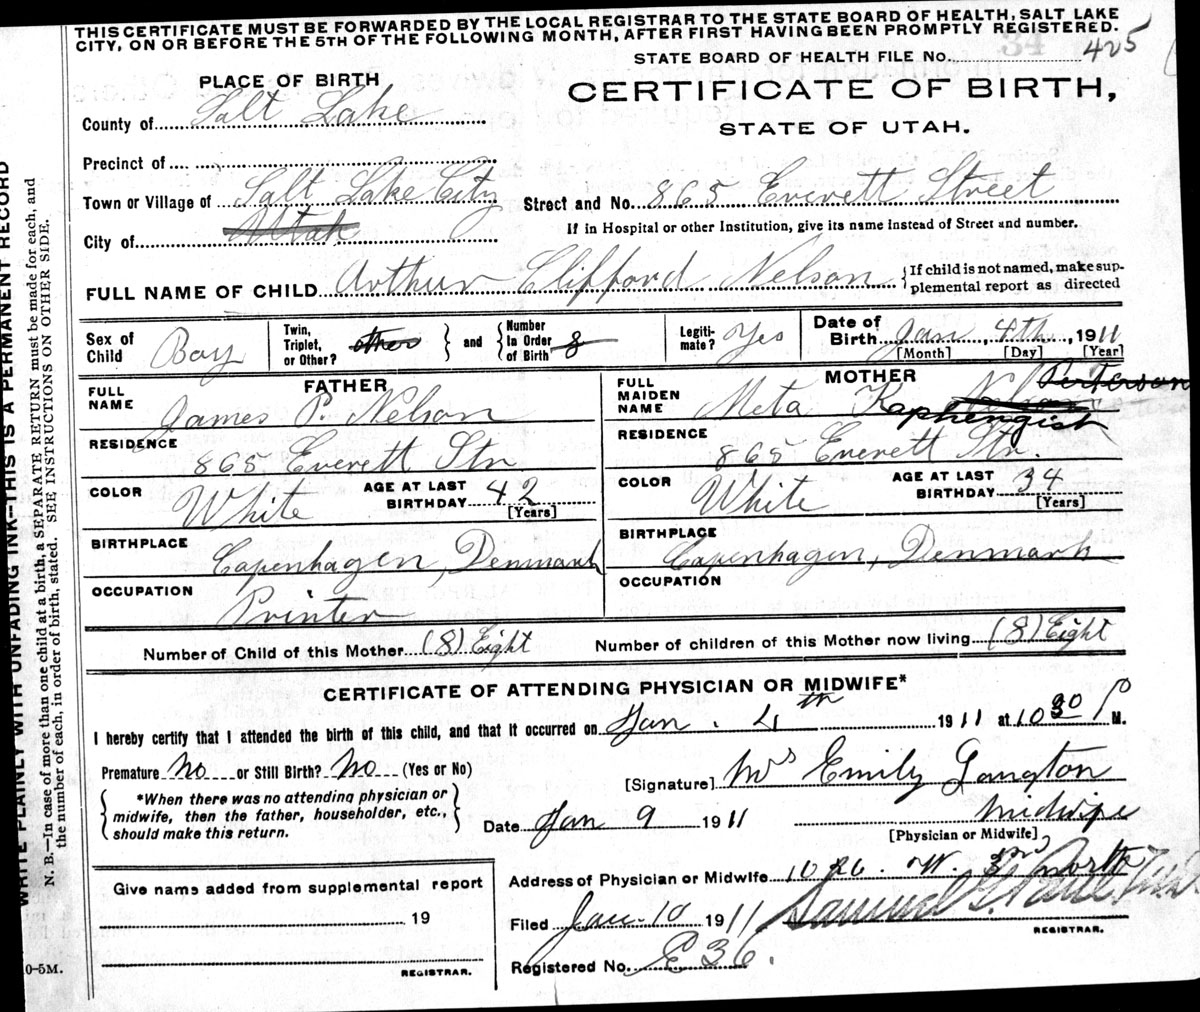 THIS CERTIFICATE MUST BE FORWARDED BY THE LOCAL REGISTRAR TO THE STATE BOARD OF HEALTH, SALT LAKE
CITY, ON OR BEFORE THE 5TH OF THE FOLLOWING MONTH, AFTER FIRST HAVING BEEN PROMPTLY REGISTERED.
STATE BOARD OF HEALTH FILE No. 425
PLACE OF BIRTH
CERTIFICATE OF BIRTH,
STATE OF UTAH.
County of Salt Lake
Precinct of
Town or Village of Salt Lake City
Street and No. 865 Everett Street
City of Utah
If in Hospital or other Institution, give its name instead of Street and number.
FULL NAME OF CHILD Arthur Clifford Nelson
If child is not named, make sup-
plemental report as directed
Sex of Child Boy
Twin, Triplet, or Other? other
and
Number In Order of Birth 8
Legiti-mate? Yes
Date of Birth Jan 4th, 1911
[Month] [Day] [Year]
FATHER
FULL NAME James P. Nelson
RESIDENCE 865 Everett Str.
COLOR White
AGE AT LAST BIRTHDAY 42
[Years]
BIRTHPLACE Copenhagen, Denmark
OCCUPATION Printer
MOTHER
FULL MAIDEN NAME Meta Nelson Perterson
Kaphengist
RESIDENCE 865 Everett Str.
COLOR White
AGE AT LAST BIRTHDAY 34
[Years]
BIRTHPLACE Copenhagen, Denmark
OCCUPATION
Number of Child of this Mother (8) Eight
Number of children of this Mother now living (8) Eight
CERTIFICATE OF ATTENDING PHYSICIAN OR MIDWIFE*
I hereby certify that I attended the birth of this child, and that it occurred on Jan. 4th 1911 at 10 30 P M.
Premature No or Still Birth? No (Yes or No)
[Signature] Mrs Emily Langton
*When there was no attending physician or
midwife, then the father, householder, etc.,
should make this return.
Date Jan 9 1911
Midwife
[Physician or Midwife]
Give name added from supplemental report
19
REGISTRAR.
Address of Physician or Midwife 1026 W. 3rd North
Filed Jan. 10 1911
Samuel G. Paul
REGISTRAR.
Registered No. E 36.
WRITE PLAINLY WITH UNFADING INK—THIS IS A PERMANENT RECORD
N. B.—In case of more than one child at a birth, a SEPARATE RETURN must be made for each, and
the number of each, in order of birth, stated. SEE INSTRUCTIONS ON OTHER SIDE.
0-5M.